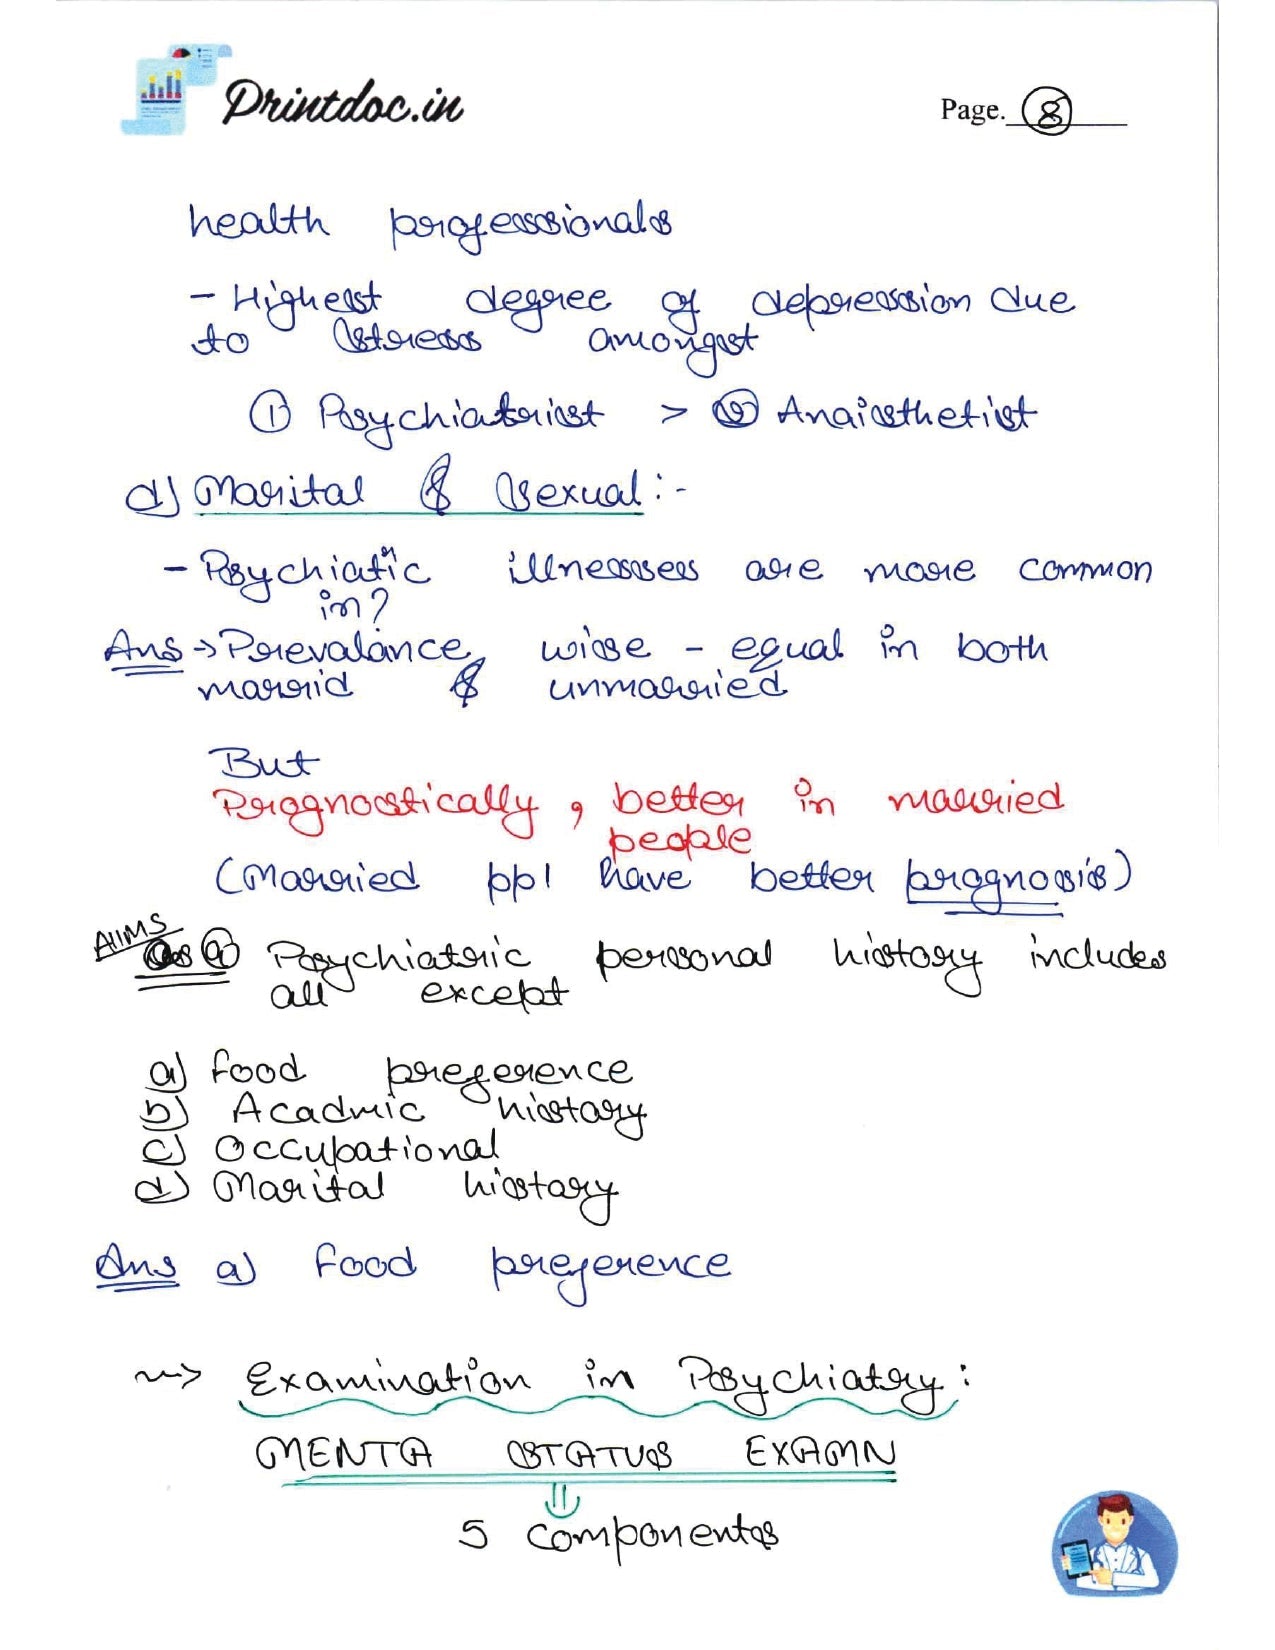 Printdoc.in
Page. 8
health professionals
- Highest degree of depression due
to stress amongst
① Psychiatrist > ② Anaisthetist
d) Marital & Sexual :-
- Psychiatric illnesses are more common
in?
Ans → Prevalance wise - equal in both
marrid & unmarried
But
Prognostically, better in married
people
(Married ppl have better prognosis)
AIIMS
Q Psychiatric personal history includes
all except
a) Food preference
b) Acadmic history
c) Occupational
d) Marital history
Ans a) Food preference
~~> Examination in Psychiatry :
MENTA STATUS EXAMN
⇓
5 components